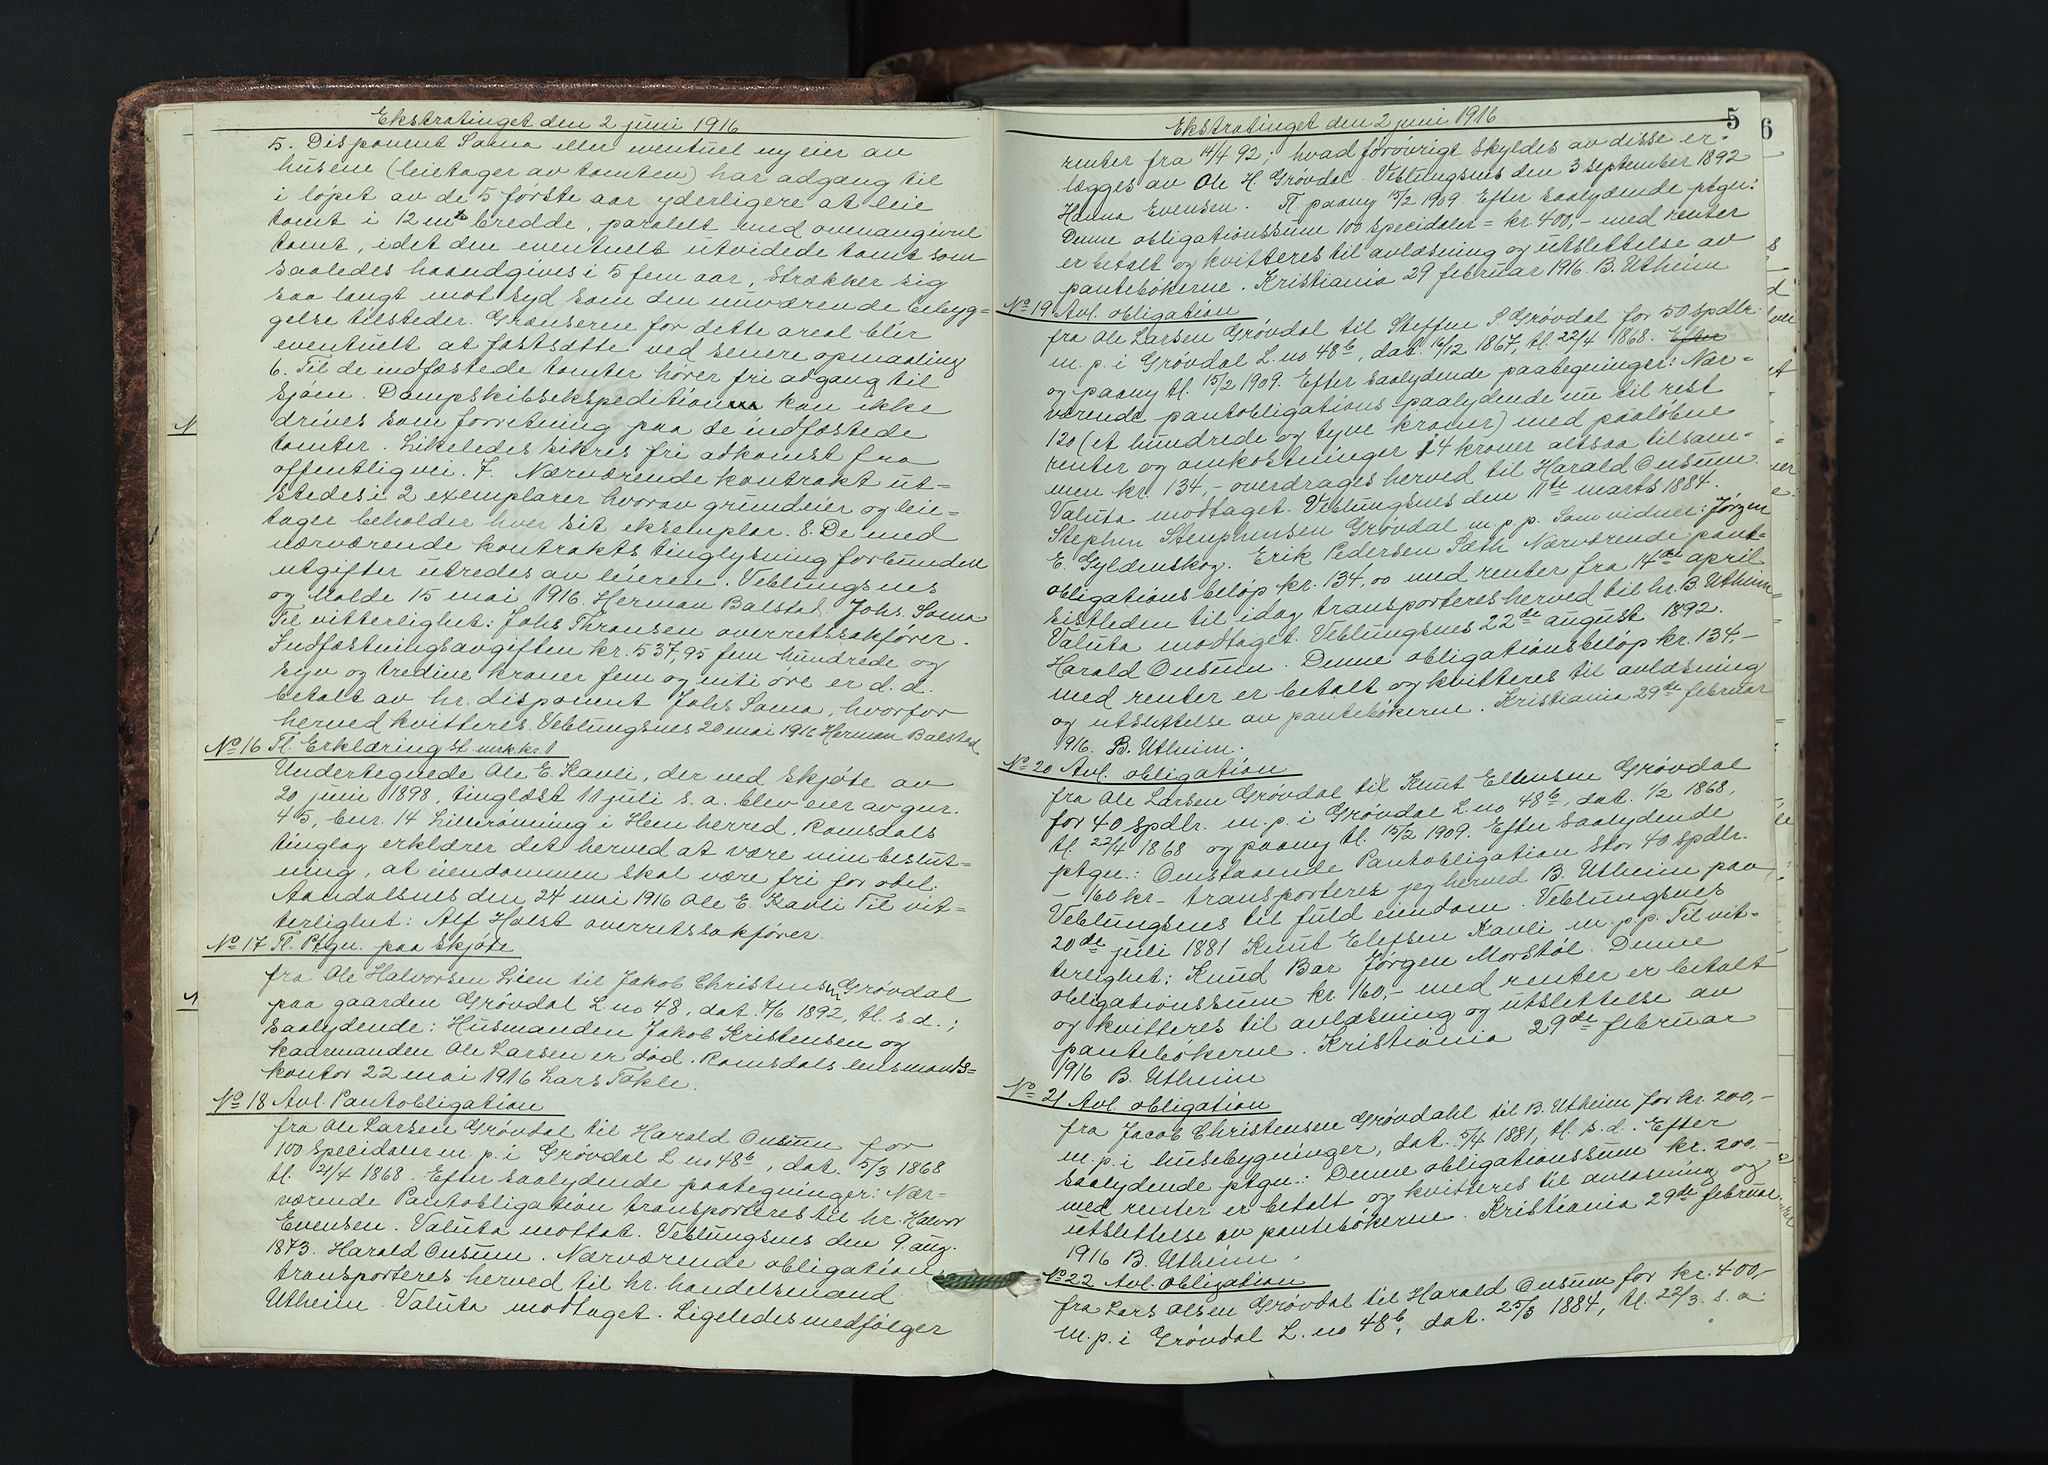 Ekstratinget den 2 juni 1916
5. Disponent Soma eller eventuel ny eier av
husene (leietager av tomten) har adgang til
i løpet av de 5 første aar yderligere at leie
tomt i 12 mts bredde, paralelt med ovenangivne
tomt, idet den eventuelt utvidede tomt som
saaledes haandgives i 5 fem aar, strækker sig
saa langt mot syd som den nuværende bebyg-
gelse tilsteder. Grænserne for dette areal blir
eventuelt at fastsætte ved senere opmaaling
6. Til de indfæstede tomter hører fri adgang til
sjøen. Dampskibsekspedition kan ikke
drives som forretning paa de indfæstede
tomter. Likeledes sikres fri adkomst fra
offentlig vei. 7. Nærværende kontrakt ut-
stedes i 2 exemplarer hvorav grundeier og leie-
tager beholder hver sit eksemplar. 8. De med
nærværende kontrakts tinglysning forbundne
utgifter utredes av leieren. Veblungsnes
og Molde 15 mai 1916. Herman Balstad. Johs. Soma
Til vitterlighet: Johs Thronsen overretssakfører.
Indfæstningsavgiften kr. 537,95 fem hundrede og
syv og tredive kroner fem og niti øre er d.d.
betalt av hr. disponent Johs Soma, hvorfor
herved kvitteres. Veblungsnes 20 mai 1916 Herman Balstad
No 16 Tl. Erklæring st mrkkrt
Undertegnede Ole E. Kavli, der ved skjøte av
20 juni 1898, tinglæst 11 juli s. a. blev eier av gnr.
45, bnr. 14 Lillerømning i Hen herred, Romsdals
tinglag erklærer det herved at være min beslut-
ning, at eiendommen skal være fri for odel.
Aandalsnes den 24 mai 1916 Ole E. Kavli Til vit-
terlighet: Alf Holst overretssakfører.
No 17 Tl. Ptgn. paa skjøte
fra Ole Halvorsen Lien til Jakob Christensen Grøvdal
paa gaarden Grøvdal L. no 48, dat. 7/6 1892, tl. s. d.;
saalydende: Husmanden Jakob Kristensen og
kaarmanden Ole Larsen er død. Romsdals lensmands-
kontor 22 mai 1916 Lars Tokle.
No 18 Avl. Pantobligation
fra Ole Larsen Grøvdal til Harald Onsum for
100 specidaler m. p. i Grøvdal L no 48b, dat. 5/3 1868
tl. 21/4 1868. Efter saalydende paategninger: Nær-
værende Pantobligation transporteres til hr. Halvor
Evensen. Valuta mottat. Veblungsnes den 9. aug.
1873. Harald Onsum. Nærværende obligation
transporteres herved til hr. handelsmand
Utheim. Valuta modtaget. Ligeledes medfølger
Ekstratinget den 2 juni 1916
5
6
renter fra 14/4 92; hvad forøvrigt skyldes av disse er-
lægges av Ole H. Grøvdal. Veblungsnes den 3 september 1892
Hanna Evensen. Tl. paany 15/2 1909. Efter saalydende ptgn:
Denne obligationssum 100 specidaler = kr. 400,- med renter
er betalt og kvitteres til avlæsning og utslettelse av
pantebøkerne. Kristiania 29 februar 1916. B. Utheim
No 19 Avl. obligation
fra Ole Larsen Grøvdal til Steffen S Grøvdal for 50 spdlr.
m. p. i Grøvdal L. no 48b, dat. 16/12 1867, tl. 22/4 1868. Efter
og paany tl. 15/2 1909. Efter saalydende paategninger: Nær-
værende pantobligations paalydende nu til rest
120 (et hundrede og tyve kroner) med paaløbne
renter og omkostninger 14 kroner altsaa tilsam-
men kr. 134,- overdrages herved til Harald Onsum.
Valuta modtaget. Veblungsnes den 11te marts 1884.
Stephen Stemphensen Grøvdal m. p. p. Som vidner: Jørgen
E. Gyldenskog. Erik Pedersen Sæth Nærværende pant-
obligations beløp kr. 134,00 med renter fra 14de april
sistleden til idag transporteres herved til hr. B. Utheim
Valuta modtaget. Veblungsnes 22de august 1892.
Harald Onsum. Denne obligationsbeløp kr. 134,-
med renter er betalt og kvitteres til avlæsning
og utslettelse av pantebøkerne. Kristiania 29de februar
1916. B. Utheim.
No 20 Avl. obligation
fra Ole Larsen Grøvdal til Knut Ellensen Grøvdal
for 40 spdlr. m. p. i Grøvdal L. no 48b, dat. 1/2 1868,
tl. 22/4 1868 og paany tl. 15/2 1909. Efter saalydende
ptgn.: Omstaaende Pantobligation stor 40 spdlr.
- 160 kr - transporteres jeg herved B. Utheim paa
Veblungsnes til fuld eiendom. Veblungsnes
20de juli 1881 Knut Elefsen Kavli m. p. p. Til vit-
terlighet: Knud Bar Jørgen Morstøl. Denne
obligationssum kr. 160,- med renter er betalt
og kvitteres til avlæsning og utslettelse av
pantebøkerne. Kristiania 29de februar
1916 B. Utheim
No 21 Avl. obligation
fra Jacob Christensen Grøvdahl til B. Utheim for kr. 200,-
m. p. i husebygninger, dat. 5/4 1881, tl. s. d. Efter
saalydende ptgn.: Denne obligationssum kr. 200,-
med renter er betalt og kvitteres til avlæsning og
utslettelse av pantebøkerne. Kristiania 29de februar
1916 B. Utheim.
No 22 Avl. obligation
fra Lars Olsen Grøvdal til Harald Onsum for kr. 400,-
m. p. i Grøvdal L. no 48b, dat. 25/3 1884, tl. 22/3. s. a.